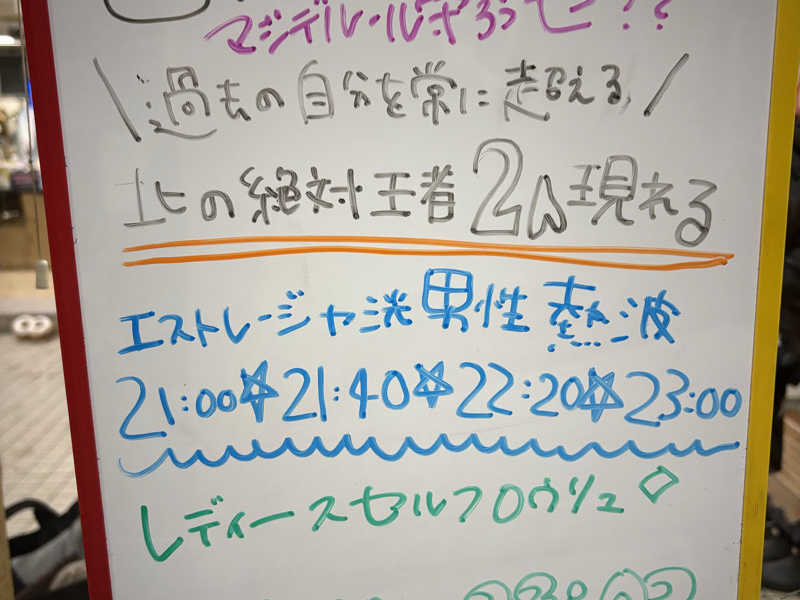 マジデルールギろっセ??
\過去の自分を常に超える/
北の絶対王者2人現れる
エストレージャ渋男性熱波
21:00☆21:40☆22:20☆23:00
レディースセルフロウリュ◇